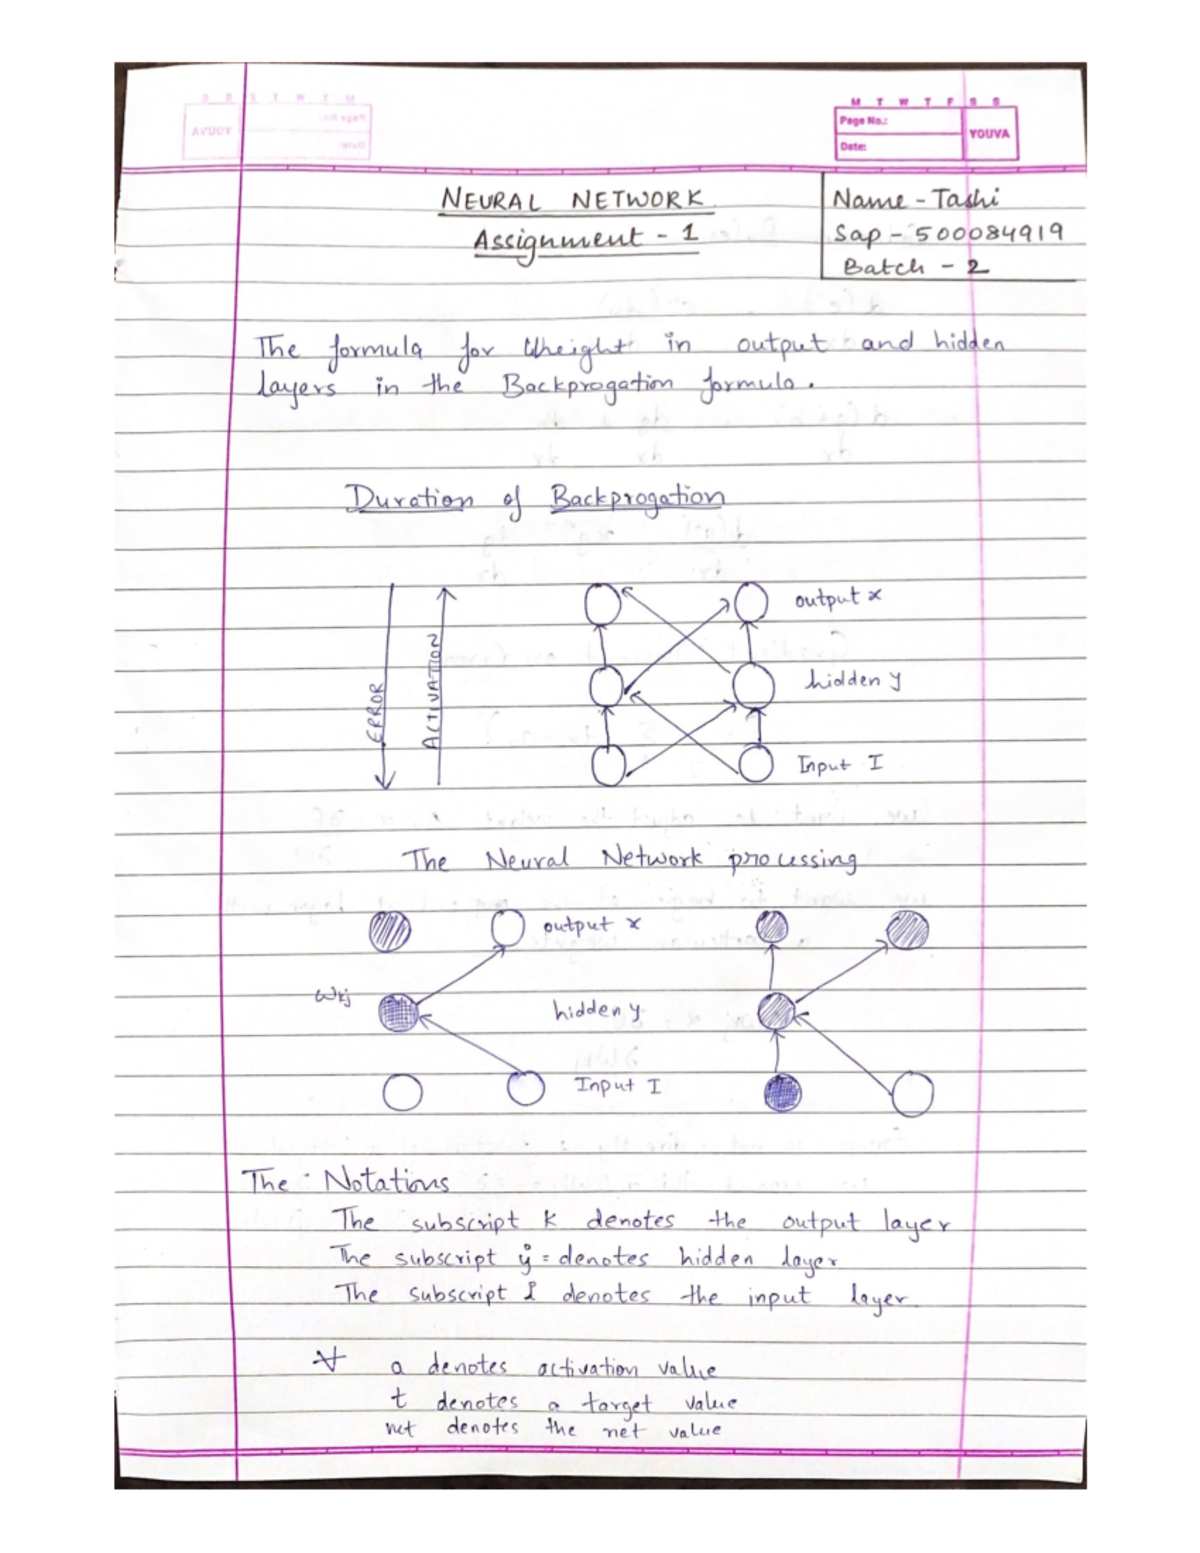 M T W T F S S
Page No.:
Date:
YOUVA
NEURAL NETWORK
Assignment - 1
Name - Tashi
Sap - 500084919
Batch - 2
The formula for Wheight in output and hidden
layers in the Backprogation formula.
Duration of Backprogation
ERROR
ACTIVATION
output x
hidden y
Input I
The Neural Network processing
output x
Wkj
hidden y
Input I
The Notations
The subscript k denotes the output layer
The subscript j = denotes hidden layer
The subscript i denotes the input layer
∀ a denotes activation value
t denotes a target value
net denotes the net value